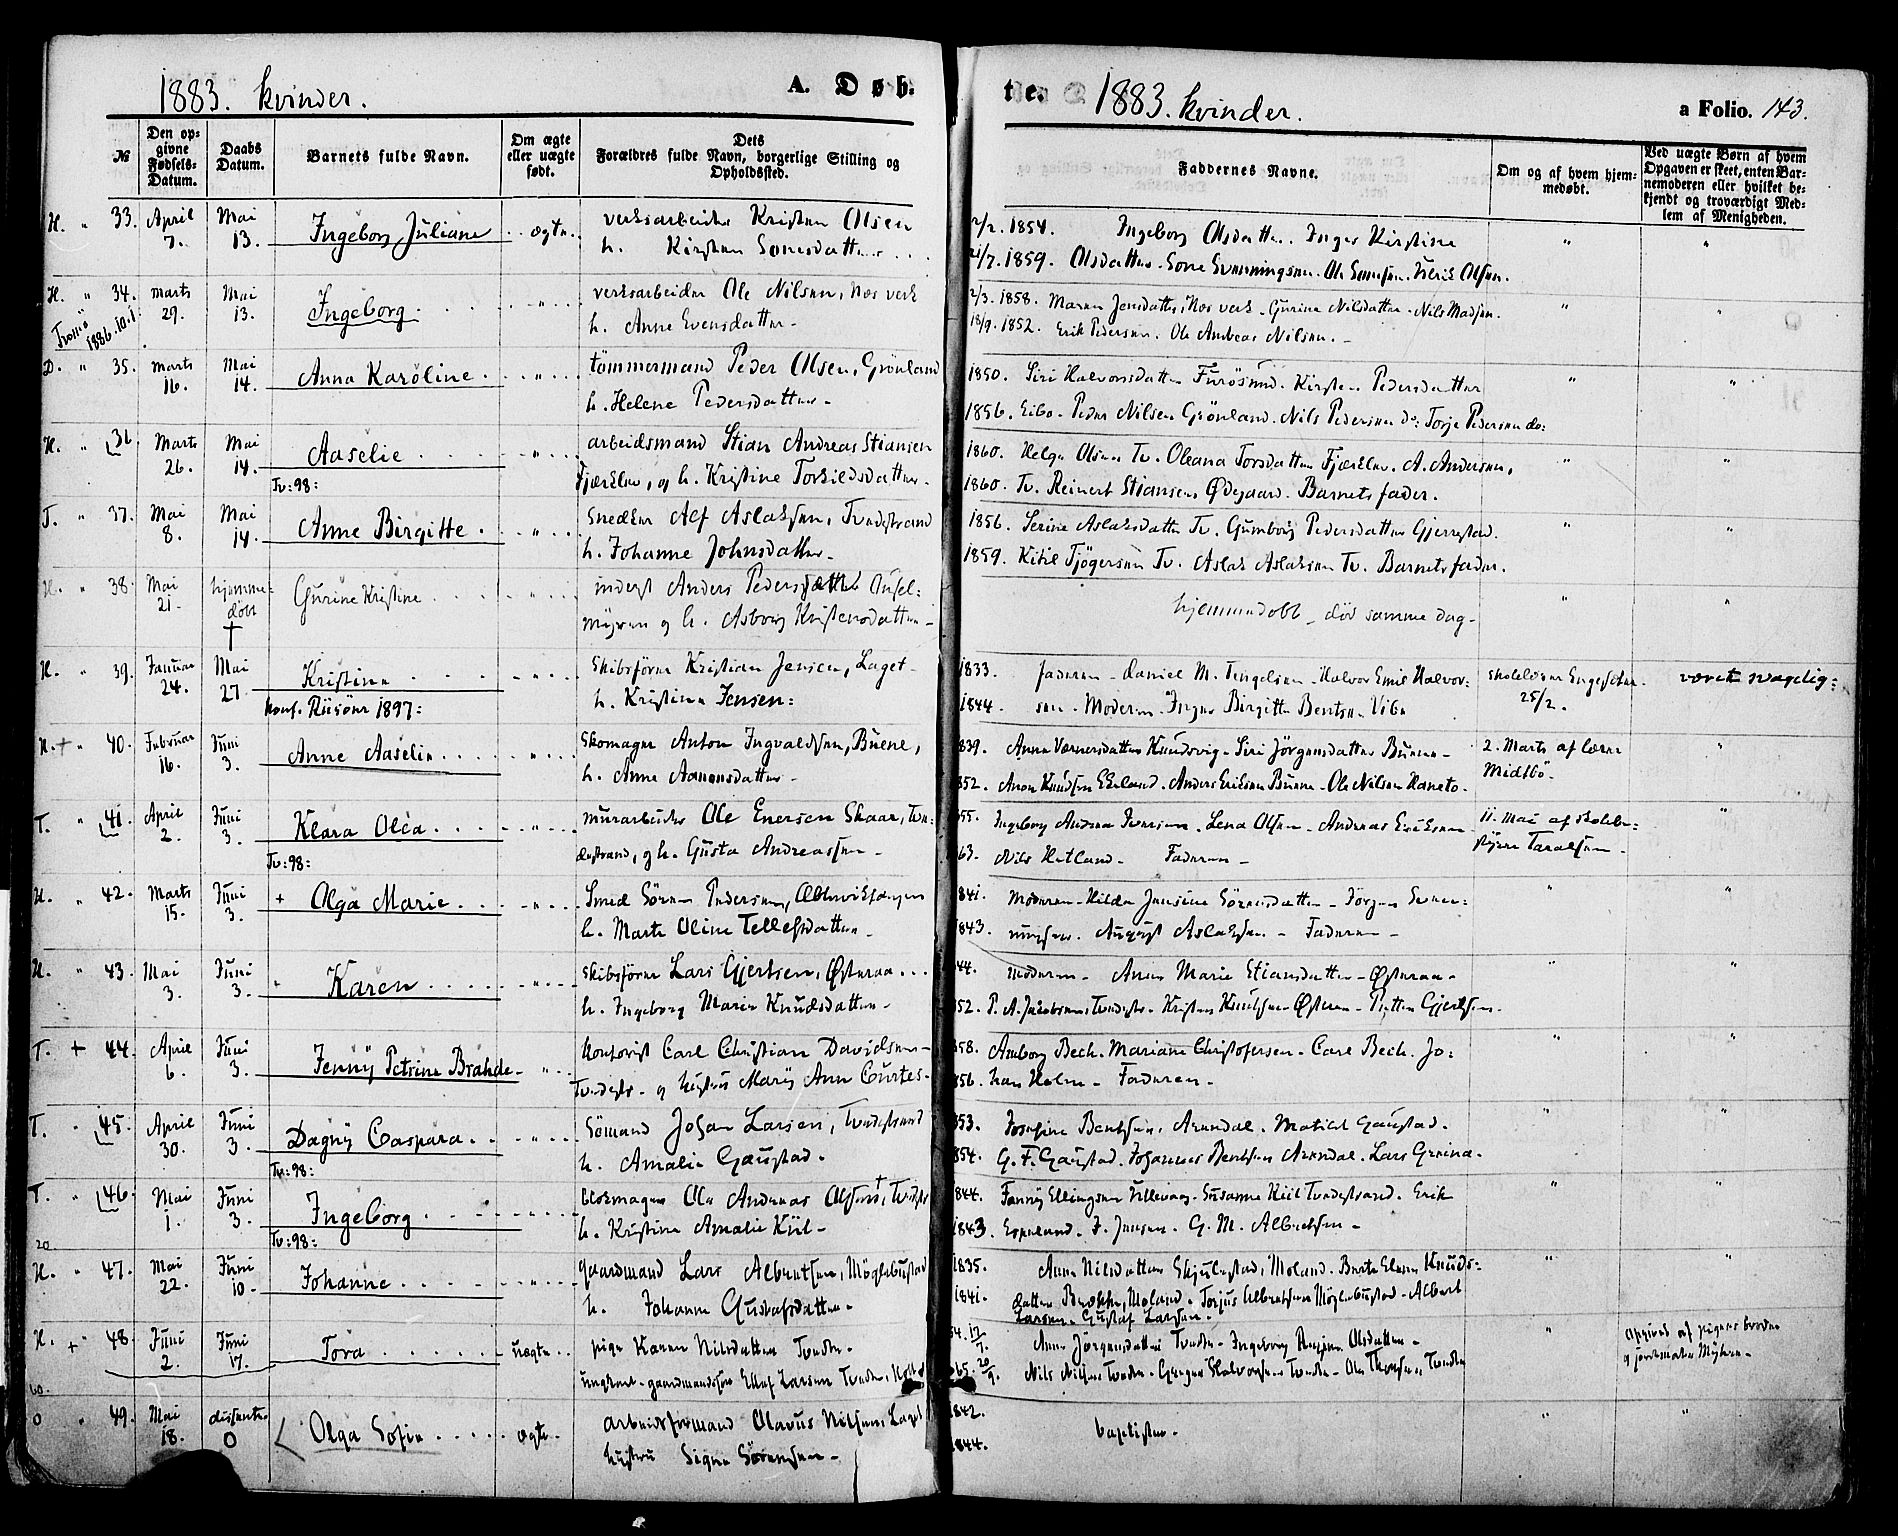 1883. kvinder.
A. Døb-
№
Den op-
givne
Fødsels-
Datum.
Daabs
Datum.
Barnets fulde Navn.
Om ægte
eller uægte
født.
Dets
Forældres fulde Navn, borgerlige Stilling og
Opholdssted.
H. " 33. April 7. Mai 13. Ingeborg Juliane ægte. verksarbeider Kristen Olsen
h. Kirsten Sonesdatter
H. " 34. marts 29. Mai 13. Ingeborg " verksarbeider Ole Nilsen, Næs verk
Tromö 1886.10.1. h. Anne Evensdatter
D. " 35. marts 16. Mai 14. Anna Karoline " tömmermand Peder Olsen, Grönland
h. Helene Pedersdatter
H. " 36. Marts 26. Mai 14. Aaselie " arbeidsmand Stian Andreas Stiansen
Tv: 98: Fjærkler, og h. Kristine Torkildsdatter
T. " 37. Mai 8. Mai 14. Anne Birgitte " Snedker Alf Aslaksen, Tvedestrand
h. Johanne Johnsdatter
H. " 38. Mai 21. hjemme-
döbt † Gurine Kristine " inderst Anders
myren og h. Asborg Kristensdatter
H. " 39. Januar 24. Mai 27 Kristine " Skibsförer Kristian Jensen, Laget
Konf. Riisöer 1897: h. Kristine Jensen:
H. + " 40. Februar 16. Juni 3. Anne Aaselie " Skomager Anton Ingvaldsen, Buene,
h. Anne Aanonsdatter
T. " 41. April 2. Juni 3. Klara Olea " murarbeider Ole Enersen Skaar, Tve-
Tv: 98: destrand, og h. Gusta Andreassen
H. " 42. Marts 15. Juni 3. + Olga Marie " Smed Sören Pedersen,
h. Marte Oline Tellefsdatter
H. " 43. Mai 3. Juni 3. Karen " Skibsförer Lars Gjertsen, Østeraa
h. Ingeborg Marie Knudsdatter
T. + 44. April 6. Juni 3. Jenny Petrine Brahde " Kontorist Carl Christian Davidsen
Tvedestr. og hustru Mary Ann Curtes
T. " 45. April 30. Juni 3. Dagny Caspara " Sömand Johan Larsen, Tvedestrand
Tv: 98: h. Amalie Gaustad.
T. " 46. Mai 1. Juni 3. Ingeborg " blokmager Ole Andreas Olsen †, Tvedestr
Tv: 98: h. Kristine Amalie Kiil
20.
H. " 47. Mai 22. Juni 10. Johanne " gaardmand Lars Albretsen, Möglebustad
h. Johanne Gustafsdatter
H. + " 48. Juni 2. Juni 17. Tora uægte pige Karen Nilsdatter Tveden
ungkarl gaardmandssön Ellef Larsen Tveden, Holt
O " 49. Mai 18. dissenter O Olga Sofie ægte. Arbeidsformand Olavus Nilsen, Laget
hustru Signe Sörensen
te. 1883. kvinder.
a Folio. 143.
Faddernes Navne.
Om og af hvem hjem-
medøbt.
Ved uægte Børn af hvem
Opgaven er skeet, enten Bar-
nemoderen eller hvilket be-
kjendt og troværdigt Med-
lem af Menigheden.
2/2. 1854. Ingeborg Olsdatter. Inger Kirstine " "
21/7. 1859. Olsdatter. Sone Svenningsen. Ole Sonesen. Teris Olsen.
2/3. 1858. Maren Jensdatter, Næs verk. Gurine Nilsdatter. Nils Madsen. " "
18/9. 1852. Erik Pedersen. Ole Andreas Nilsen.
1850. Siri Halvorsdatter Furösund. Kirsten Pedersdatter " "
1856. Eibo. Peder Nilsen Grönland. Nils Pedersen do: Torje Pedersen do:
1860. Helga Olsen Tv. Oleana Torsdatter Fjærkler. A. Andersen, " "
1860. Tv. Reinert Stiansen Ødegaard. Barnets fader.
1856. Serine Aslaksdatter Tv. Gumborg Pedersdatter Gjerrestad. " "
1859. Kitil Tjögersen Tv. Aslak Aslaksen Tv. Barnets fader.
hjemmedöbt, död samme dag. " "
1833. faderen. Daniel M. Tengelsen. Halvor Emil Halvor- skolelærer Engesether været svagelig:
1844. sen. Moderen. Inger Birgitte Bentsen Vibo 25/2.
839. Anne Værnersdatter Knudsvig. Siri Jörgensdatter Buene 2. Marts af lærer "
852. Aron Knudsen Ekeland. Anders Eriksen Buene. Ole Nilsen Haneto. Midtbö.
855. Ingeborg Andrea Iversen. Lena Olsen. Andreas Eriksen 11. Mai af skolebe- "
63. Nils Hetland. Faderen styrer Taralsen
841. Moderen. Hilda Jensine Sörensdatter. Jörgen Sven- " "
843. ningsen. August Aslaksen. Faderen
44. Moderen. Anne Marie Stiansdatter. Østeraa " "
852. P. A. Jacobsen, Tvedestr. Kristen Knudsen Østeraa. Gjertsen.
858. Aanborg Bech. Mariane Christofersen. Carl Bech. Jo- " "
856. han Holm. Faderen.
853. Josefine Bentsen, Arendal. Matild Gaustad. " "
854. G. F. Gaustad. Johannes Bentsen Arendal. Lars Greina.
844. Fanny Ellingsen Ullevaag. Susanne Kiil Tvedestrand. Erik " "
1843. Espeland. J. Jensen. G. M. Albretsen
1835. Anne Nilsdatter Skjulestad, Moland. Berte Elene Knuds- " "
1841. datter Moland. Torjus Albretsen Möglebustad. Albert
Larsen. Gustaf Larsen.
54. 17/7. Anne Jörgensdatter Tveden. Ingeborg Olsdatter " Opgivet af pigens broder
65. 20/9. Nils Nilsen Tveden. Halvorsen Tveden. Ole Thorsen, Tveden og jordmoder
1842. baptister. " "
1844.